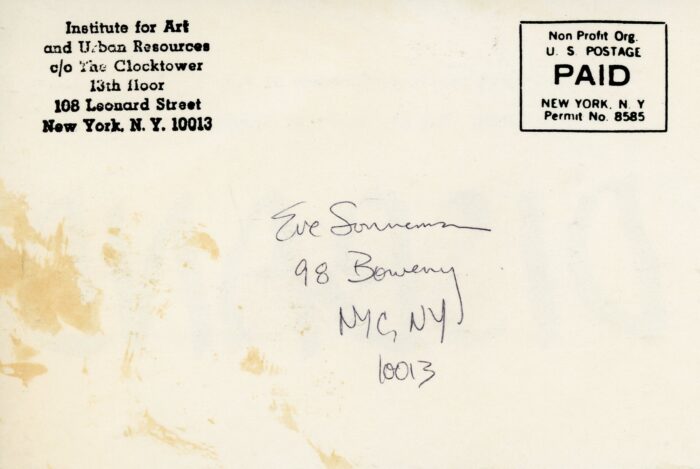 Institute for Art
and Urban Resources
c/o The Clocktower
13th floor
108 Leonard Street
New York, N.Y. 10013
Non Profit Org.
U. S. POSTAGE
PAID
NEW YORK, N. Y
Permit No. 8585
Eve Sonneman
98 Bowery
NYC, NY
10013